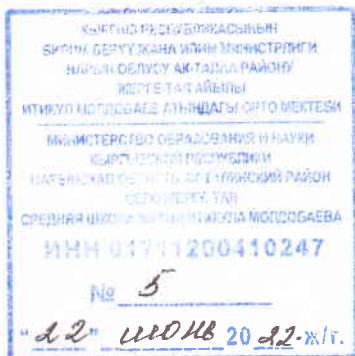 КЫРГЫЗ РЕСПУБЛИКАСЫНЫН
БИЛИМ БЕРҮҮ ЖАНА ИЛИМ МИНИСТРЛИГИ
НАРЫН ОБЛУСУ АК-ТАЛАА РАЙОНУ
ЖЕРГЕ-ТАЛ АЙЫЛЫ
МОЛДОБАЕВ АТЫНДАГЫ ОРТО МЕКТЕБИ
МИНИСТЕРСТВО ОБРАЗОВАНИЯ И НАУКИ
КЫРГЫЗСКОЙ РЕСПУБЛИКИ
НАРЫНСКАЯ ОБЛАСТЬ АК-ТАЛИНСКИЙ РАЙОН
СЕЛО ЖЕРГЕ ТАЛ
СРЕДНЯЯ ШКОЛА МОЛДОБАЕВА
ИНН 01711200410247
№ 5
"22" июнь 20 22-ж/г.